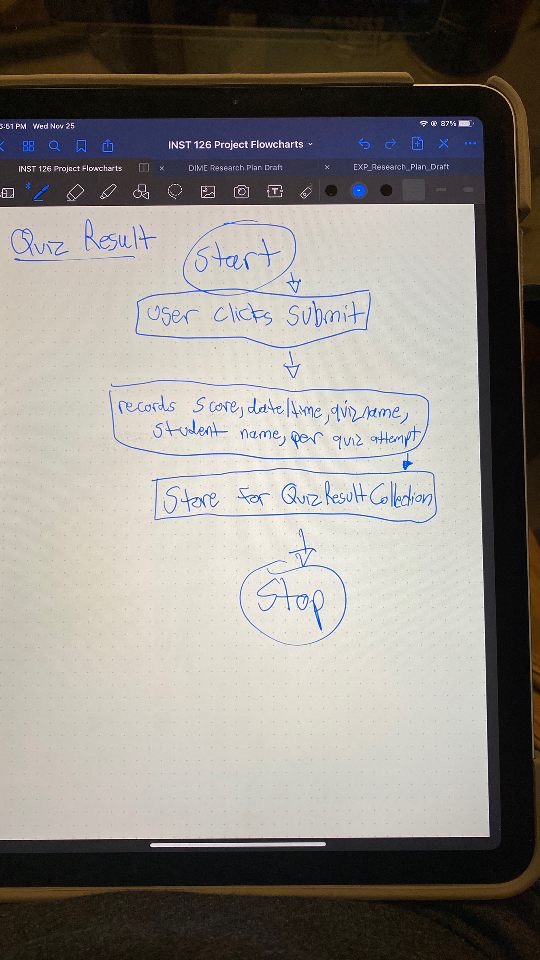 5:51 PM Wed Nov 25
87%
INST 126 Project Flowcharts
INST 126 Project Flowcharts
DIME Research Plan Draft
EXP_Research_Plan_Draft
Quiz Result
Start
User clicks submit
records score, date/time, quizname,
student name, per quiz attempt
Store for QuizResultCollection
Stop